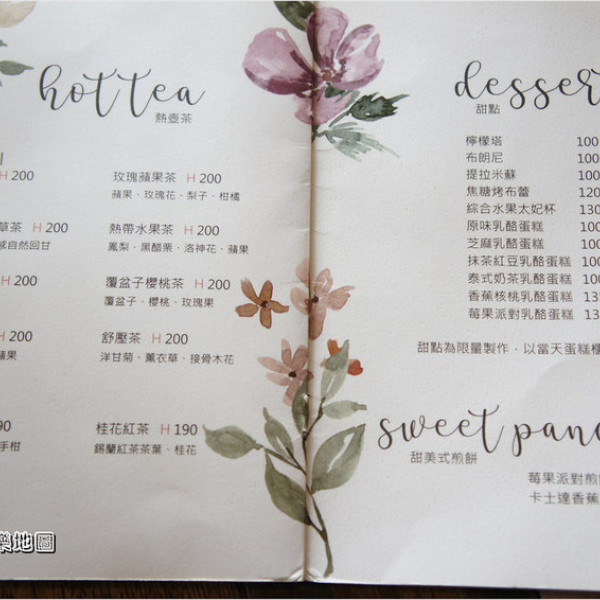 hot tea
熱壺茶
H 200
玫瑰蘋果茶 H 200
蘋果、玫瑰花、梨子、柑橘
草茶 H 200
感自然回甘
熱帶水果茶 H 200
鳳梨、黑醋栗、洛神花、蘋果
H 200
覆盆子櫻桃茶 H 200
覆盆子、櫻桃、玫瑰果
H 200
蘋果
舒壓茶 H 200
洋甘菊、薰衣草、接骨木花
90
手柑
桂花紅茶 H 190
錫蘭紅茶茶葉、桂花
dessert
甜點
檸檬塔 100
布朗尼 100
提拉米蘇 100
焦糖烤布蕾 120
綜合水果太妃杯 130
原味乳酪蛋糕 100
芝麻乳酪蛋糕 100
抹茶紅豆乳酪蛋糕 100
泰式奶茶乳酪蛋糕 100
香蕉核桃乳酪蛋糕 13
莓果派對乳酪蛋糕 13
甜點為限量製作，以當天蛋糕櫃
sweet panc
甜美式煎餅
莓果派對煎餅
卡士達香蕉
樂地圖